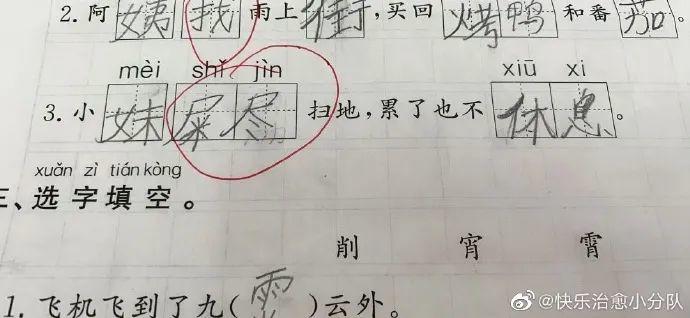 2.阿姨找雨上街，买回烤鸭和番茄。
mèi shǐ jìn xiū xi
3.小妹屎尽扫地，累了也不休息。
xuǎn zì tián kòng
三、选字填空。
削 宵 霄
1.飞机飞到了九( )云外。
@快乐治愈小分队